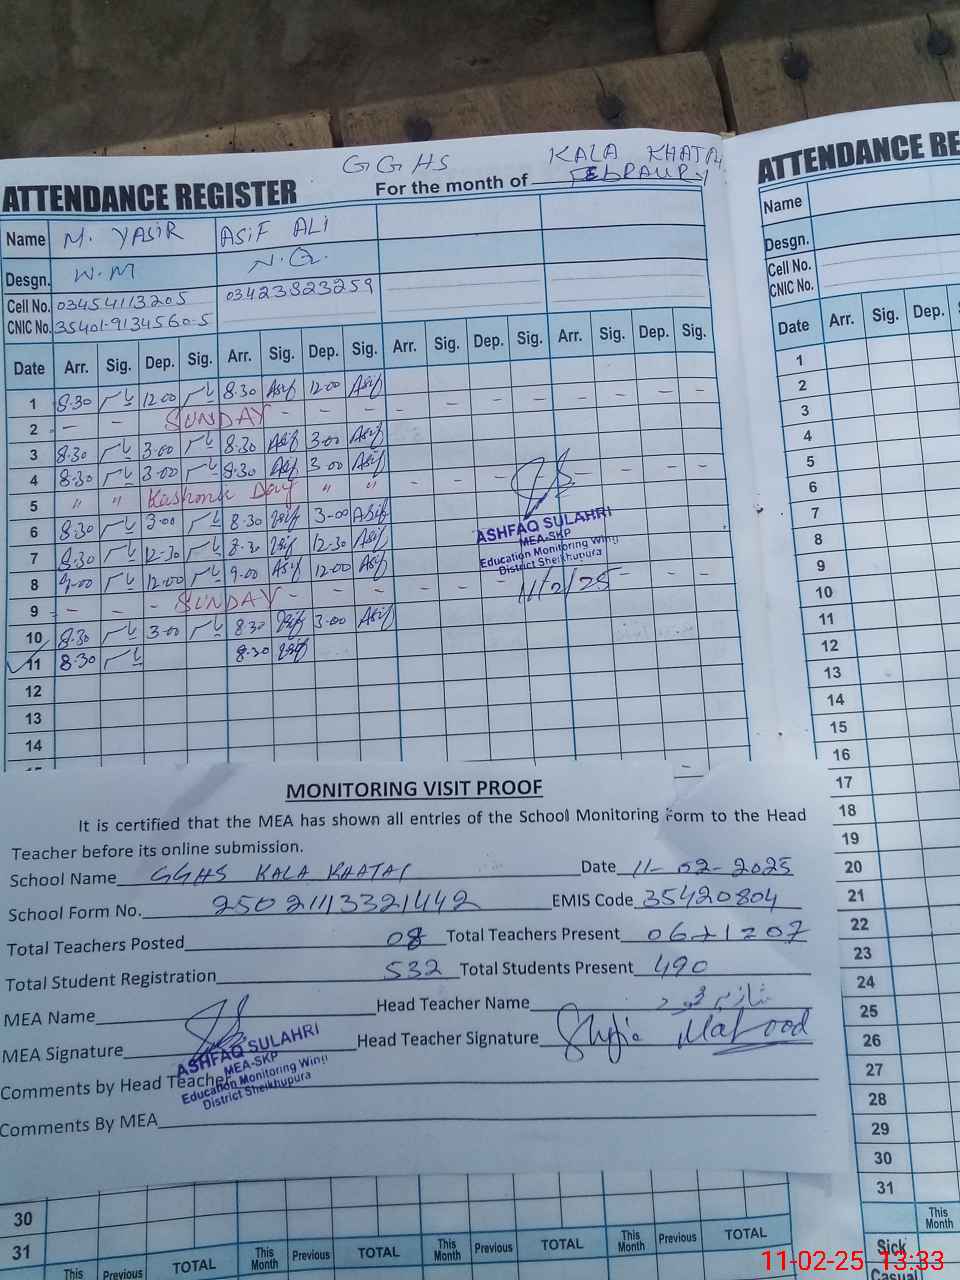 GGHS KALA KHATAI
ATTENDANCE REGISTER For the month of FEBRAURY
Name M. YASIR ASIF ALI
Desgn. W.M N.Q.
Cell No. 03454113205 03423823259
CNIC No. 35401-9134560-5
Date Arr. Sig. Dep. Sig. Arr. Sig. Dep. Sig. Arr. Sig. Dep. Sig. Arr. Sig. Dep. Sig.
1 8.30 12.00 8.30 Asif 12.00 Asif
2 - - SUNDAY - - - - - - - - - -
3 8.30 3.00 8.30 Asif 3.00 Asif
4 8.30 3.00 8.30 Asif 3.00 Asif
5 " " Kashmir Day " " - - - - - - - -
6 8.30 3.00 8.30 Asif 3.00 Asif
7 8.30 12.30 8.30 Asif 12.30 Asif
8 9.00 12.00 9.00 Asif 12.00 Asif
9 - - - SUNDAY - - - - - - - - - -
10 8.30 3.00 8.30 Asif 3.00 Asif
11 8.30 8.30 Asif
12
13
14
ASHFAQ SULAHRI
MEA-SKP
Education Monitoring Wing
District Sheikhupura
11/2/25
MONITORING VISIT PROOF
It is certified that the MEA has shown all entries of the School Monitoring Form to the Head
Teacher before its online submission.
School Name GGHS KALA KHATAI Date 11-02-2025
School Form No. 25021113321442 EMIS Code 35420804
Total Teachers Posted 08 Total Teachers Present 06+1=07
Total Student Registration 532 Total Students Present 490
MEA Name Head Teacher Name
MEA Signature Head Teacher Signature
ASHFAQ SULAHRI
MEA-SKP
Education Monitoring Wing
District Sheikhupura
Comments by Head Teacher
Comments By MEA
30
31
This Month Previous TOTAL This Month Previous TOTAL This Month Previous TOTAL This Month Previous TOTAL
ATTENDANCE RE
Name
Desgn.
Cell No.
CNIC No.
Date Arr. Sig. Dep.
1
2
3
4
5
6
7
8
9
10
11
12
13
14
15
16
17
18
19
20
21
22
23
24
25
26
27
28
29
30
31
This Month
Sick
Casual
11-02-25 13:33